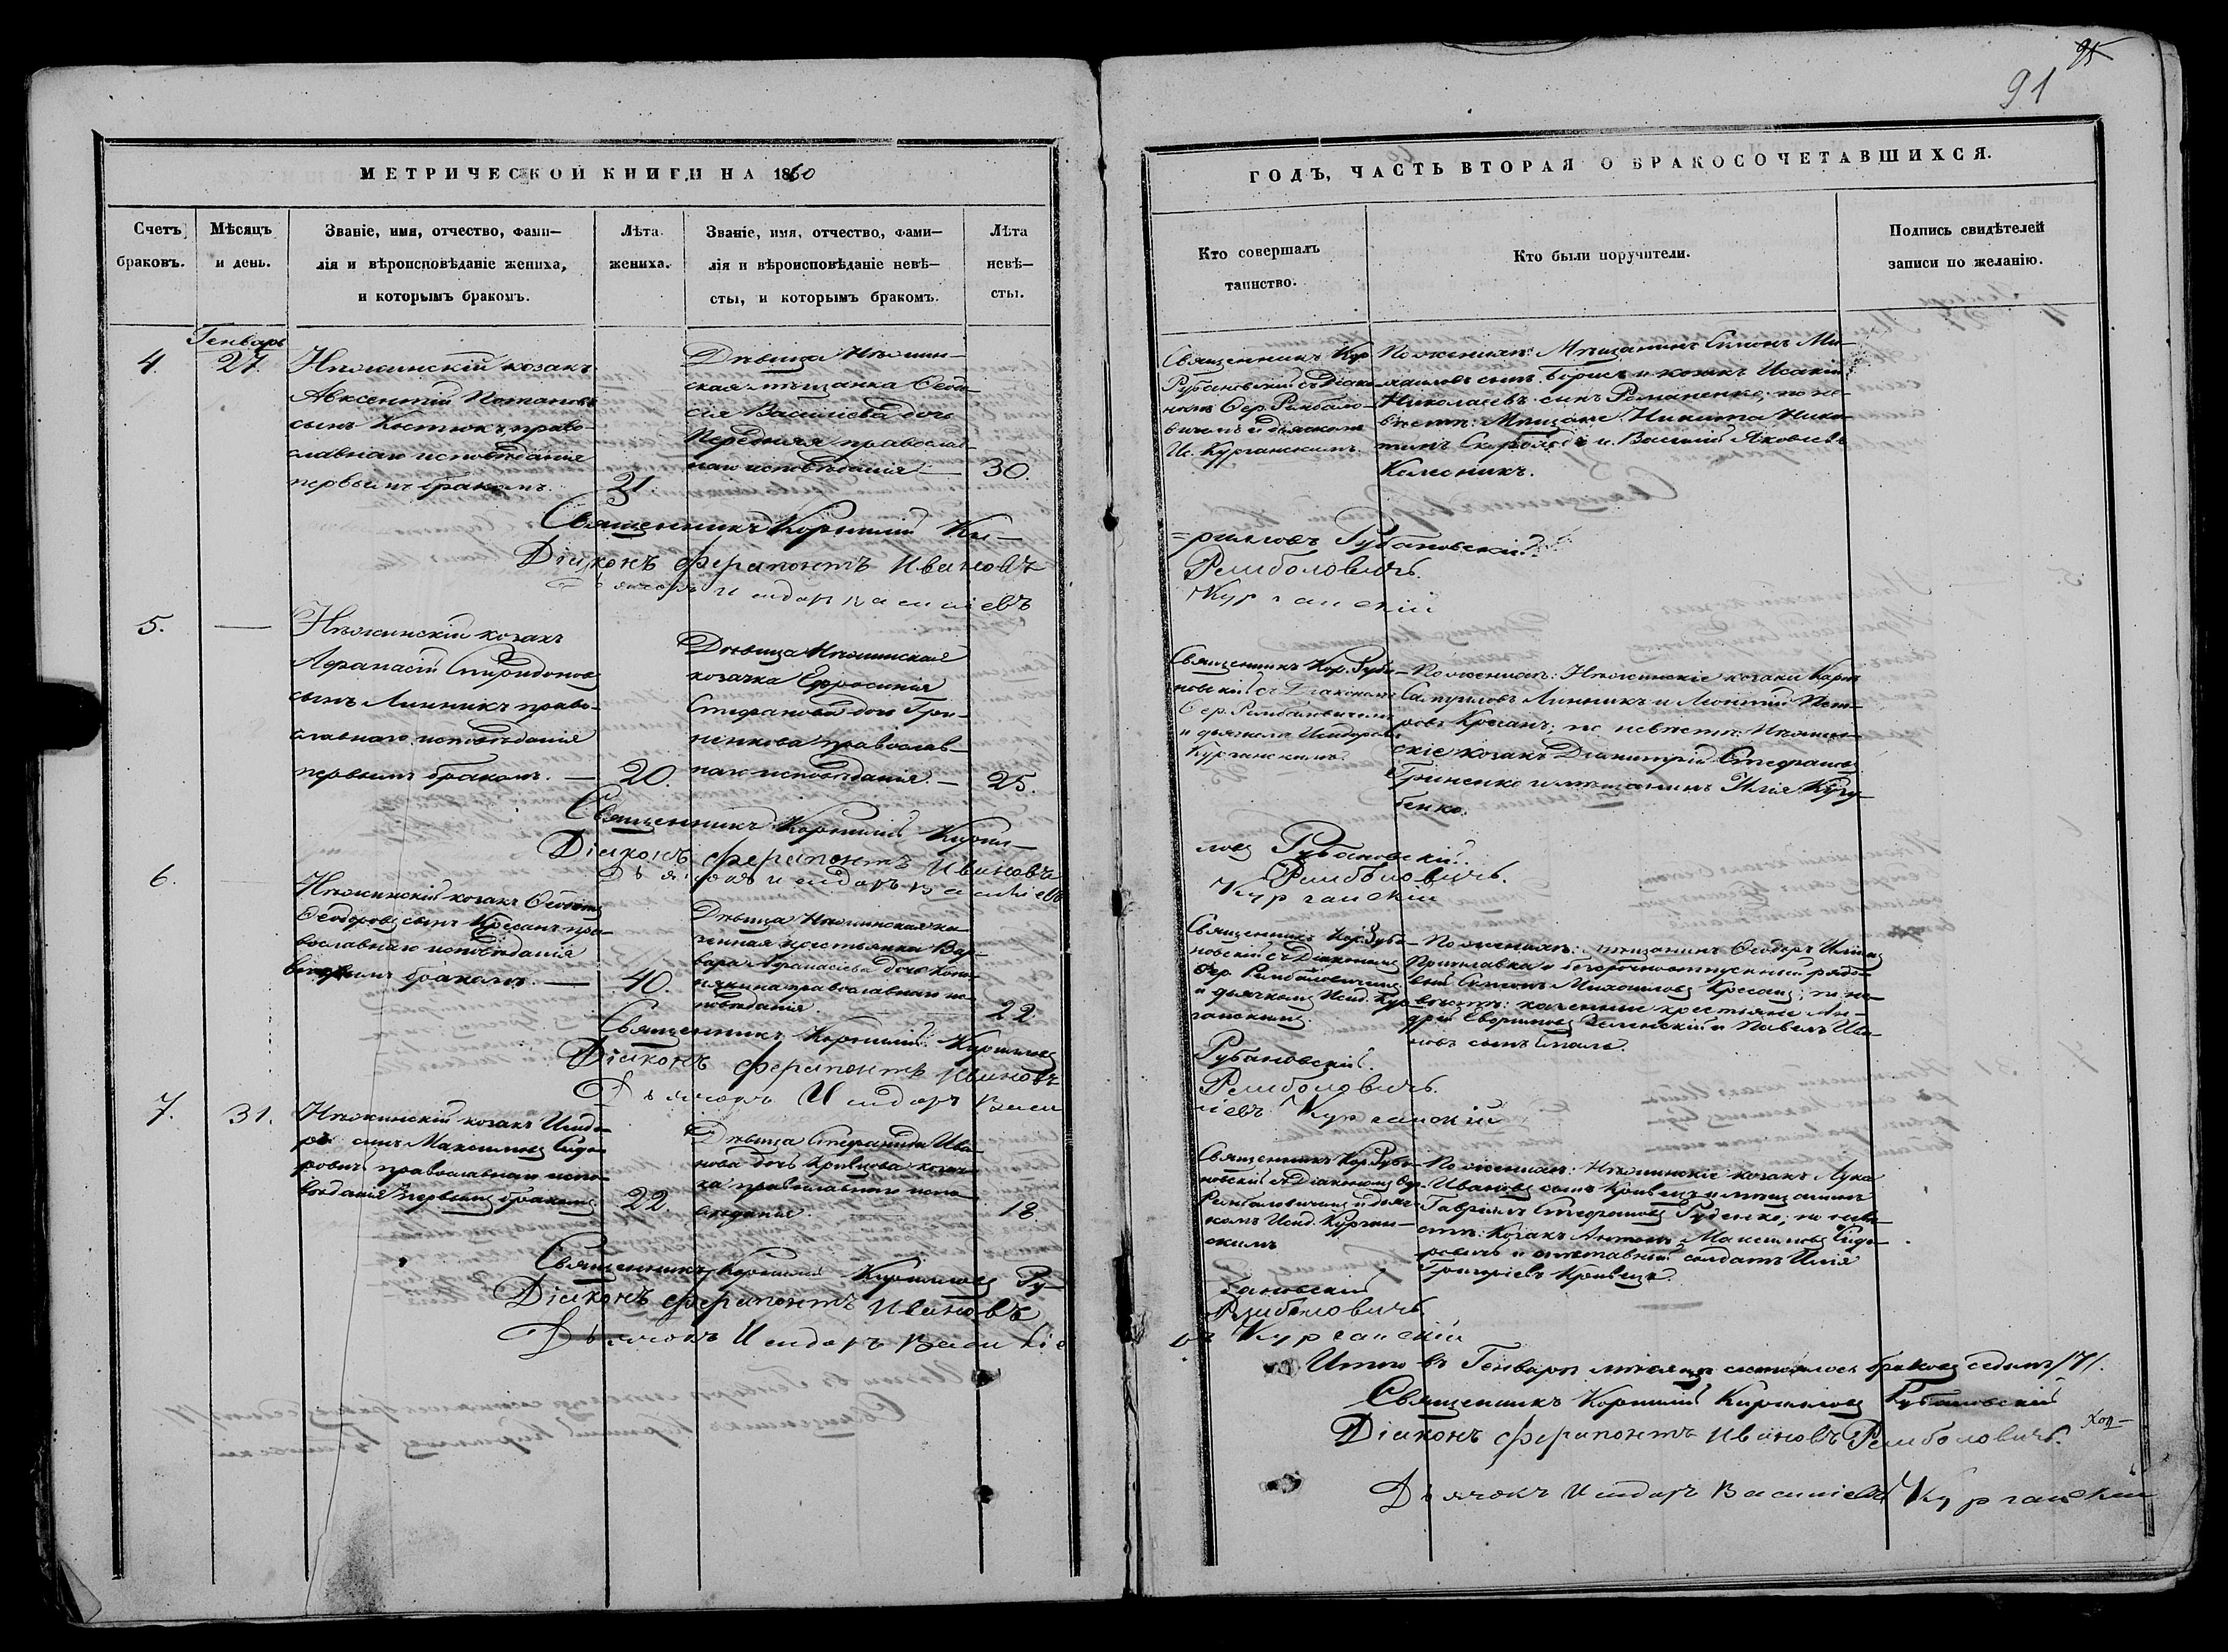 95
91
МЕТРИЧЕСКОЙ КНИГИ НА 1860
ГОДЪ, ЧАСТЬ ВТОРАЯ О БРАКОСОЧЕТАВШИХСЯ.
Счетъ браковъ.
Мѣсяцъ и день.
Званіе, имя, отчество, фами-
лія и вѣроисповѣданіе жениха,
и которымъ бракомъ.
Лѣта жениха.
Званіе, имя, отчество, фами-
лія и вѣроисповѣданіе невѣ-
сты, и которымъ бракомъ.
Лѣта невѣ-
сты.
Кто совершалъ
таинство.
Кто были поручители.
Подпись свидѣтелей
записи по желанію.
Генварь
4
27
Нѣжинскій козакъ
Авксентій Потаповъ
сынъ Костюкъ право-
славнаго исповѣданія
первымъ бракомъ.
31.
Дѣвица Нѣжин-
ская мѣщанка Ѳеодо-
сія Васильева дочь
православ-
наго исповѣданія
30.
Священникъ Кор.
Рубановскій съ Діако-
номъ Ѳер. Рембало-
вичемъ и дьячкомъ
Ис. Курганскимъ.
По женихѣ: Мѣщанинъ Симонъ Ми-
хаиловъ сынъ Борисъ и козакъ Исакій
Николаевъ сынъ Романенко, по не-
вѣстѣ: Мѣщане Никита Ники-
тинъ и Василій Яковлевъ
Колесникъ.
Священникъ Корнилій Ки-
=рилловъ Рубановскій.
Діаконъ Ферапонтъ Ивановъ
Рембаловичъ.
Дьячокъ Исидоръ Василіевъ
Курганскій
5.
Нѣжинскій козакъ
Афанасій Спиридоновъ
сынъ Линникъ право-
славнаго исповѣданія
первымъ бракомъ.
20.
Дѣвица Нѣжинская
козачка Ефросинія
Стефанова дочь Гри-
ненкова православ-
наго исповѣданія.
25.
Священникъ Кор. Руба-
новскій съ Діакономъ
Ѳер. Рембаловичемъ
и дьячкомъ Исидоромъ
Курганскимъ.
По женихѣ: Нѣжинскіе козаки Карпъ
Линникъ и Леонтій Пет-
ровъ Кресанъ; по невѣстѣ: Нѣжин-
скіе козакъ Димитрій Стефановъ
Гриненко и мѣщанинъ Илія
Священникъ Корнилій Кирил-
ловъ Рубановскій.
Діаконъ Ферапонтъ Ивановъ
Рембаловичъ.
Дьячокъ Исидоръ Василіевъ
Курганскій
6.
Нѣжинскій козакъ
Ѳеодоровъ сынъ Кресанъ пра-
вославнаго исповѣданія
вторымъ бракомъ.
40.
Дѣвица Нѣжинская ка-
зенная крестьянка Вар-
вара Афанасіева дочь
православнаго ис-
повѣданія.
22
Священникъ Кор. Руба-
новскій съ Діакономъ
Ѳер. Рембаловичемъ
и дьячкомъ Исид. Кур-
ганскимъ.
По женихѣ: мѣщанинъ Ѳеодоръ
и безсрочноотпускный рядо-
вый Симонъ Михаиловъ Кресанъ; по не-
вѣстѣ: казенные крестьяне Ан-
дрей Зеленскій и Павелъ Ива-
новъ сынъ
Священникъ Корнилій Кирилловъ
Рубановскій.
Діаконъ Ферапонтъ Ивановъ
Рембаловичъ.
Дьячокъ Исидоръ Васи
ліевъ Курганскій
7.
31.
Нѣжинскій козакъ Исидо-
ръ сынъ Максимовъ Сидо-
ровичъ православнаго испо-
вѣданія первымъ бракомъ
22
Дѣвица Стефанида Ива-
нова дочь Кривцова козач-
ка православнаго испо-
вѣданія
18
Священникъ Кор. Руба-
новскій съ Діакономъ Ѳер.
Рембаловичемъ и дьяч-
комъ Исид. Курган-
скимъ
По женихѣ: Нѣжинскіе козакъ Лука
Ивановъ сынъ Кривецъ и мѣщанинъ
Гавріилъ Стефановъ Руденко; по невѣ-
стѣ: Козакъ Антонъ Максимовъ Сидо-
ровичъ и отставный солдатъ Илія
Григоріевъ Кривецъ.
Священникъ Корнилій Кирилловъ Ру-
бановскій
Діаконъ Ферапонтъ Ивановъ
Рембаловичъ.
Дьячокъ Исидоръ Василіе
въ Курганскій
Итого въ Генварѣ мѣсяцѣ состоялось браковъ седмь /7/.
Священникъ Корнилій Кирилловъ Рубановскій
Діаконъ Ферапонтъ Ивановъ Рембаловичъ.
Дьячокъ Исидоръ Василіевъ Курганскій